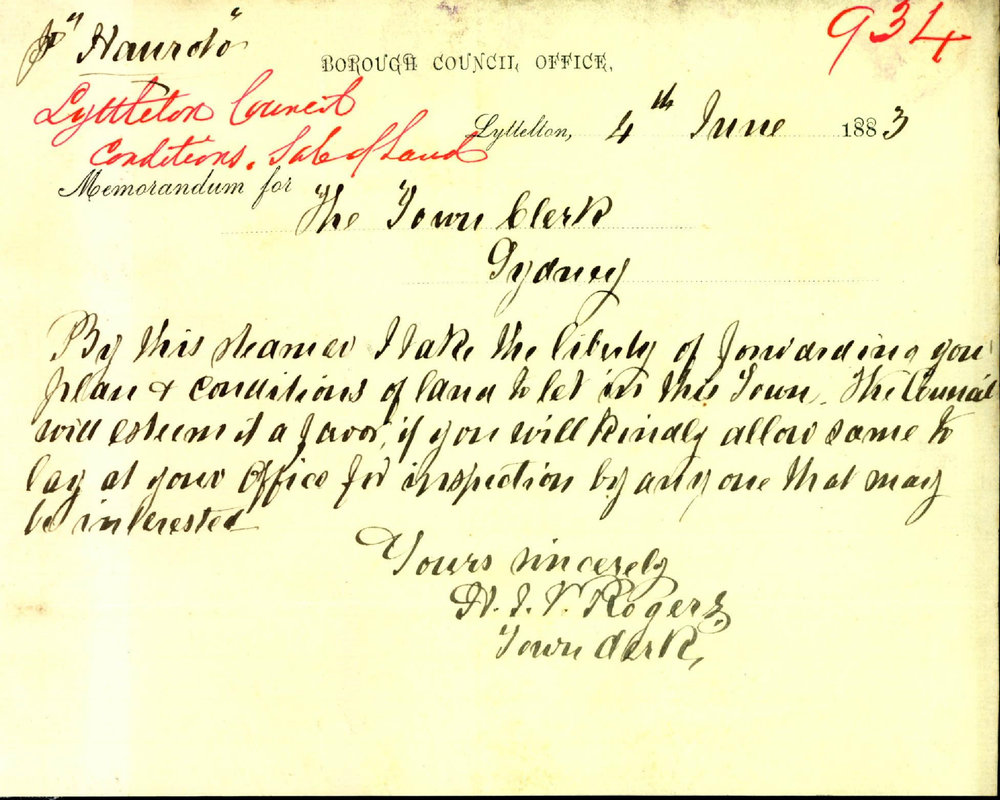 934
BOROUGH COUNCIL OFFICE.
Lyttleton Council
Conditions. Sale of Land
Lyttelton, 4th June 1883
Memorandum for The Town Clerk
Sydney
By this steamer I take the liberty of forwarding you
plan & conditions of land to let in this Town. The Council
will esteem it a favor, if you will kindly allow same to
lay at your Office for inspection by any one that may
be interested
Yours sincerely
H. I. V. Rogers.
Town Clerk,